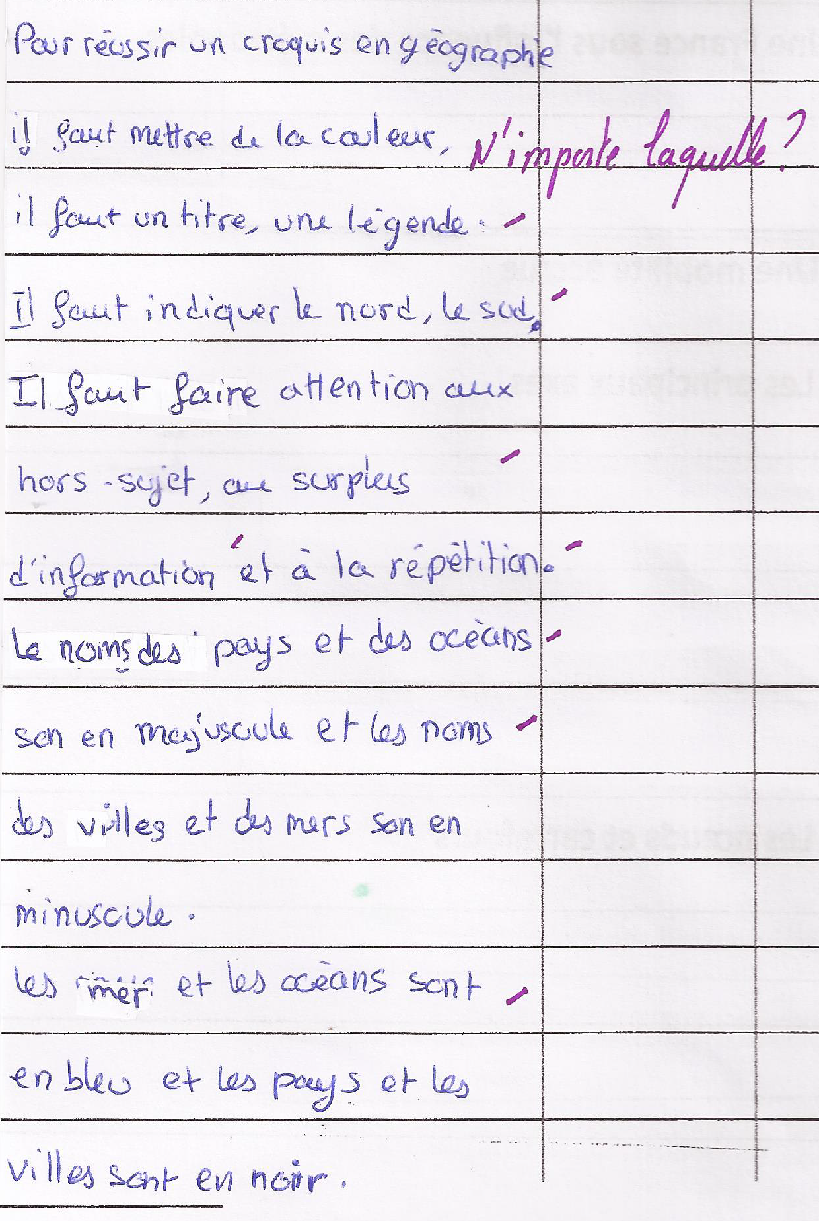 Pour réussir un croquis en géographe
il faut mettre de la couleur, N'importe laquelle ?
il faut un titre, une légende.
Il faut indiquer le nord, le sud.
Il faut faire attention aux
hors-sujet, au surplus
d'information et à la répétition.
le noms des pays et des océans
son en majuscule et les noms
des villes et des mers son en
minuscule.
les mer et les océans sont
en bleu et les pays et les
villes sont en noir.